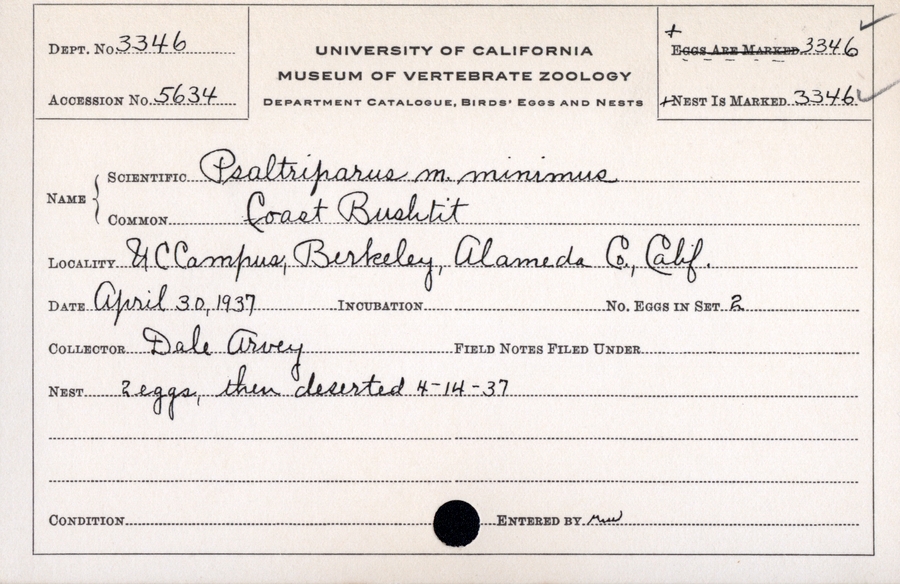 DEPT. No. 3346
ACCESSION No. 5634
UNIVERSITY OF CALIFORNIA
MUSEUM OF VERTEBRATE ZOOLOGY
DEPARTMENT CATALOGUE, BIRDS' EGGS AND NESTS
+ EGGS ARE MARKED 3346
+ NEST IS MARKED 3346
NAME
SCIENTIFIC Psaltriparus m. minimus
COMMON Coast Bushtit
LOCALITY UC Campus, Berkeley, Alameda Co., Calif.
DATE April 30, 1937 INCUBATION No. EGGS IN SET 2
COLLECTOR Dale Arvey FIELD NOTES FILED UNDER
NEST 2 eggs, then deserted 4-14-37
CONDITION ENTERED BY